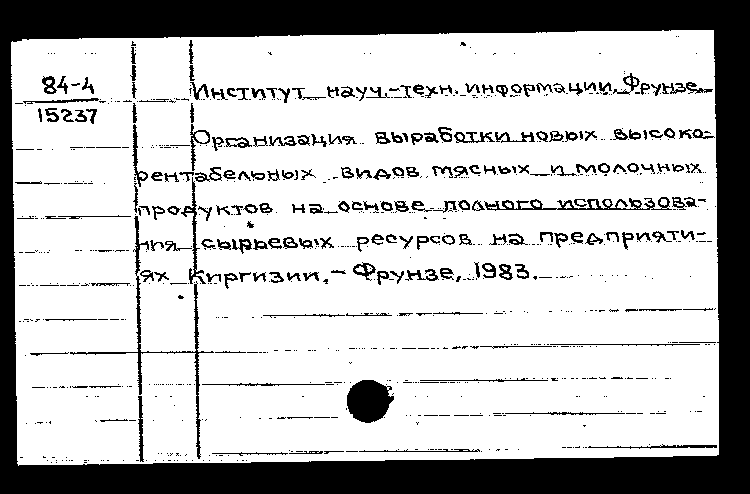 84-4
15237
Институт науч.-техн. информации. Фрунзе.
Организация выработки новых высоко-
рентабельных видов мясных и молочных
продуктов на основе полного использова-
ния сырьевых ресурсов на предприяти-
ях Киргизии.- Фрунзе, 1983.